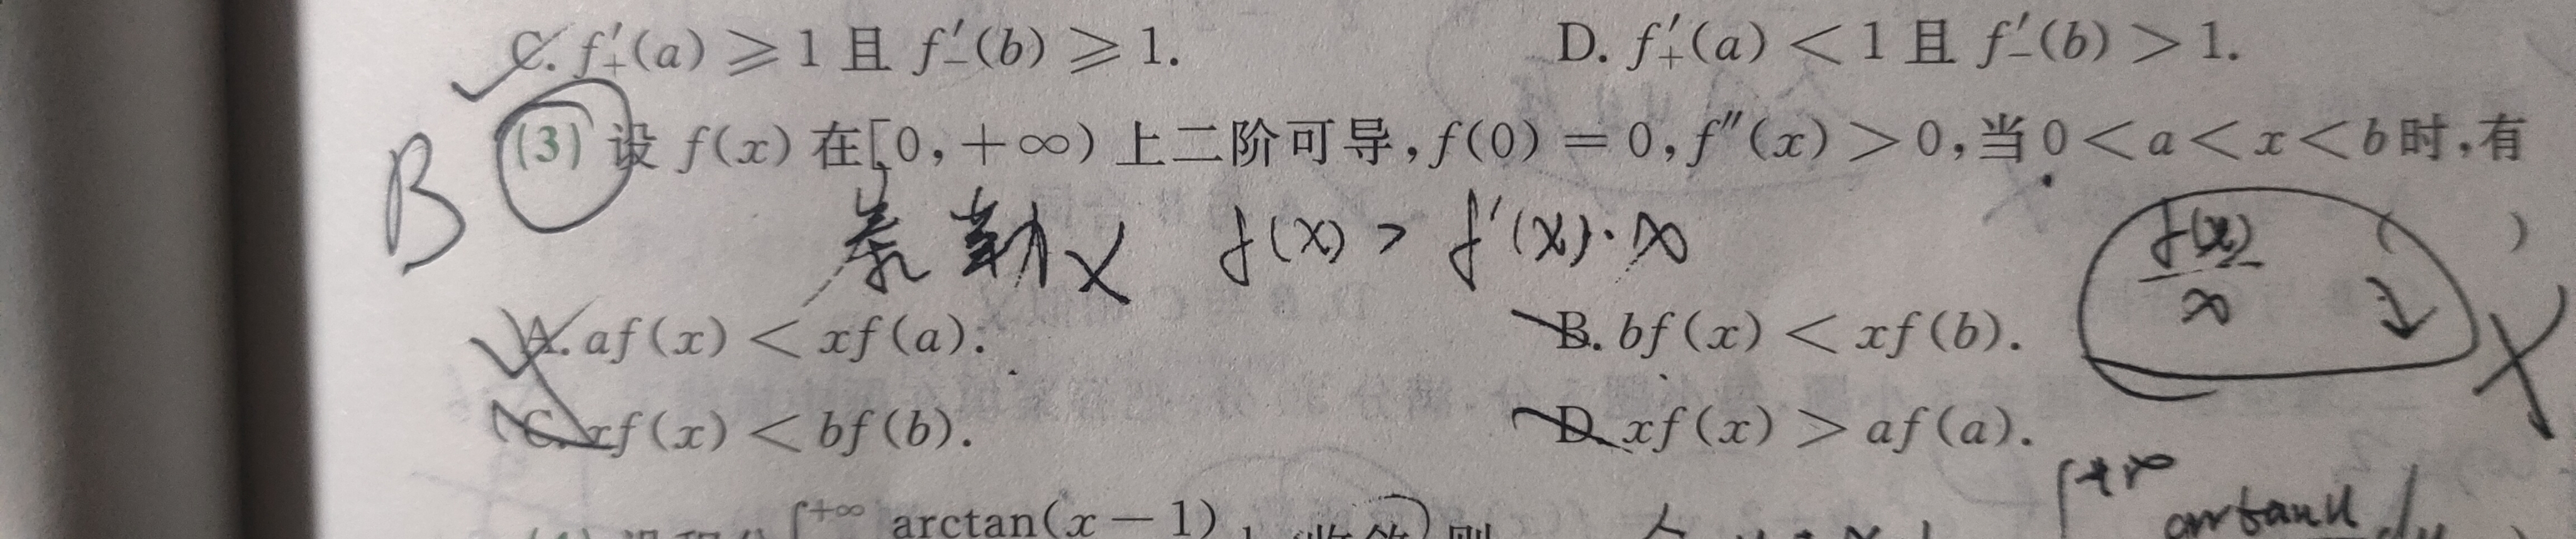 C. f′₊(a) ⩾ 1 且 f′₋(b) ⩾ 1. D. f′₊(a) < 1 且 f′₋(b) > 1.
B (3) 设 f(x) 在[0,+∞) 上二阶可导,f(0) = 0,f″(x) > 0,当 0 < a < x < b 时,有
泰勒 f(x) > f′(x)·x f(x)/x ↓ ( )
A. af(x) < xf(a). B. bf(x) < xf(b).
C. xf(x) < bf(b). D. xf(x) > af(a).
∫^{+∞} arctan(x − 1) 则 ∫^{+∞} arctan u du